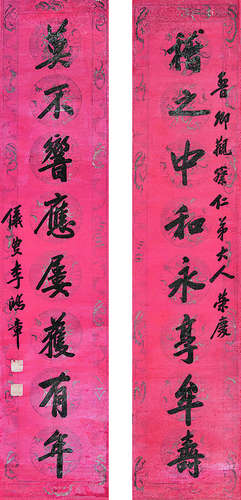 魯卿觀察仁弟大人榮慶
稽之中和永享牟壽
莫不響應屢獲有年
儀叟李鴻章